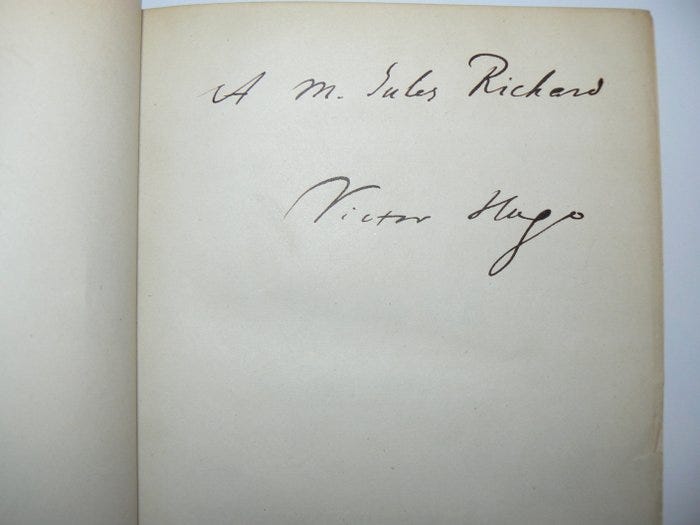 A M. Jules Richard
Victor Hugo